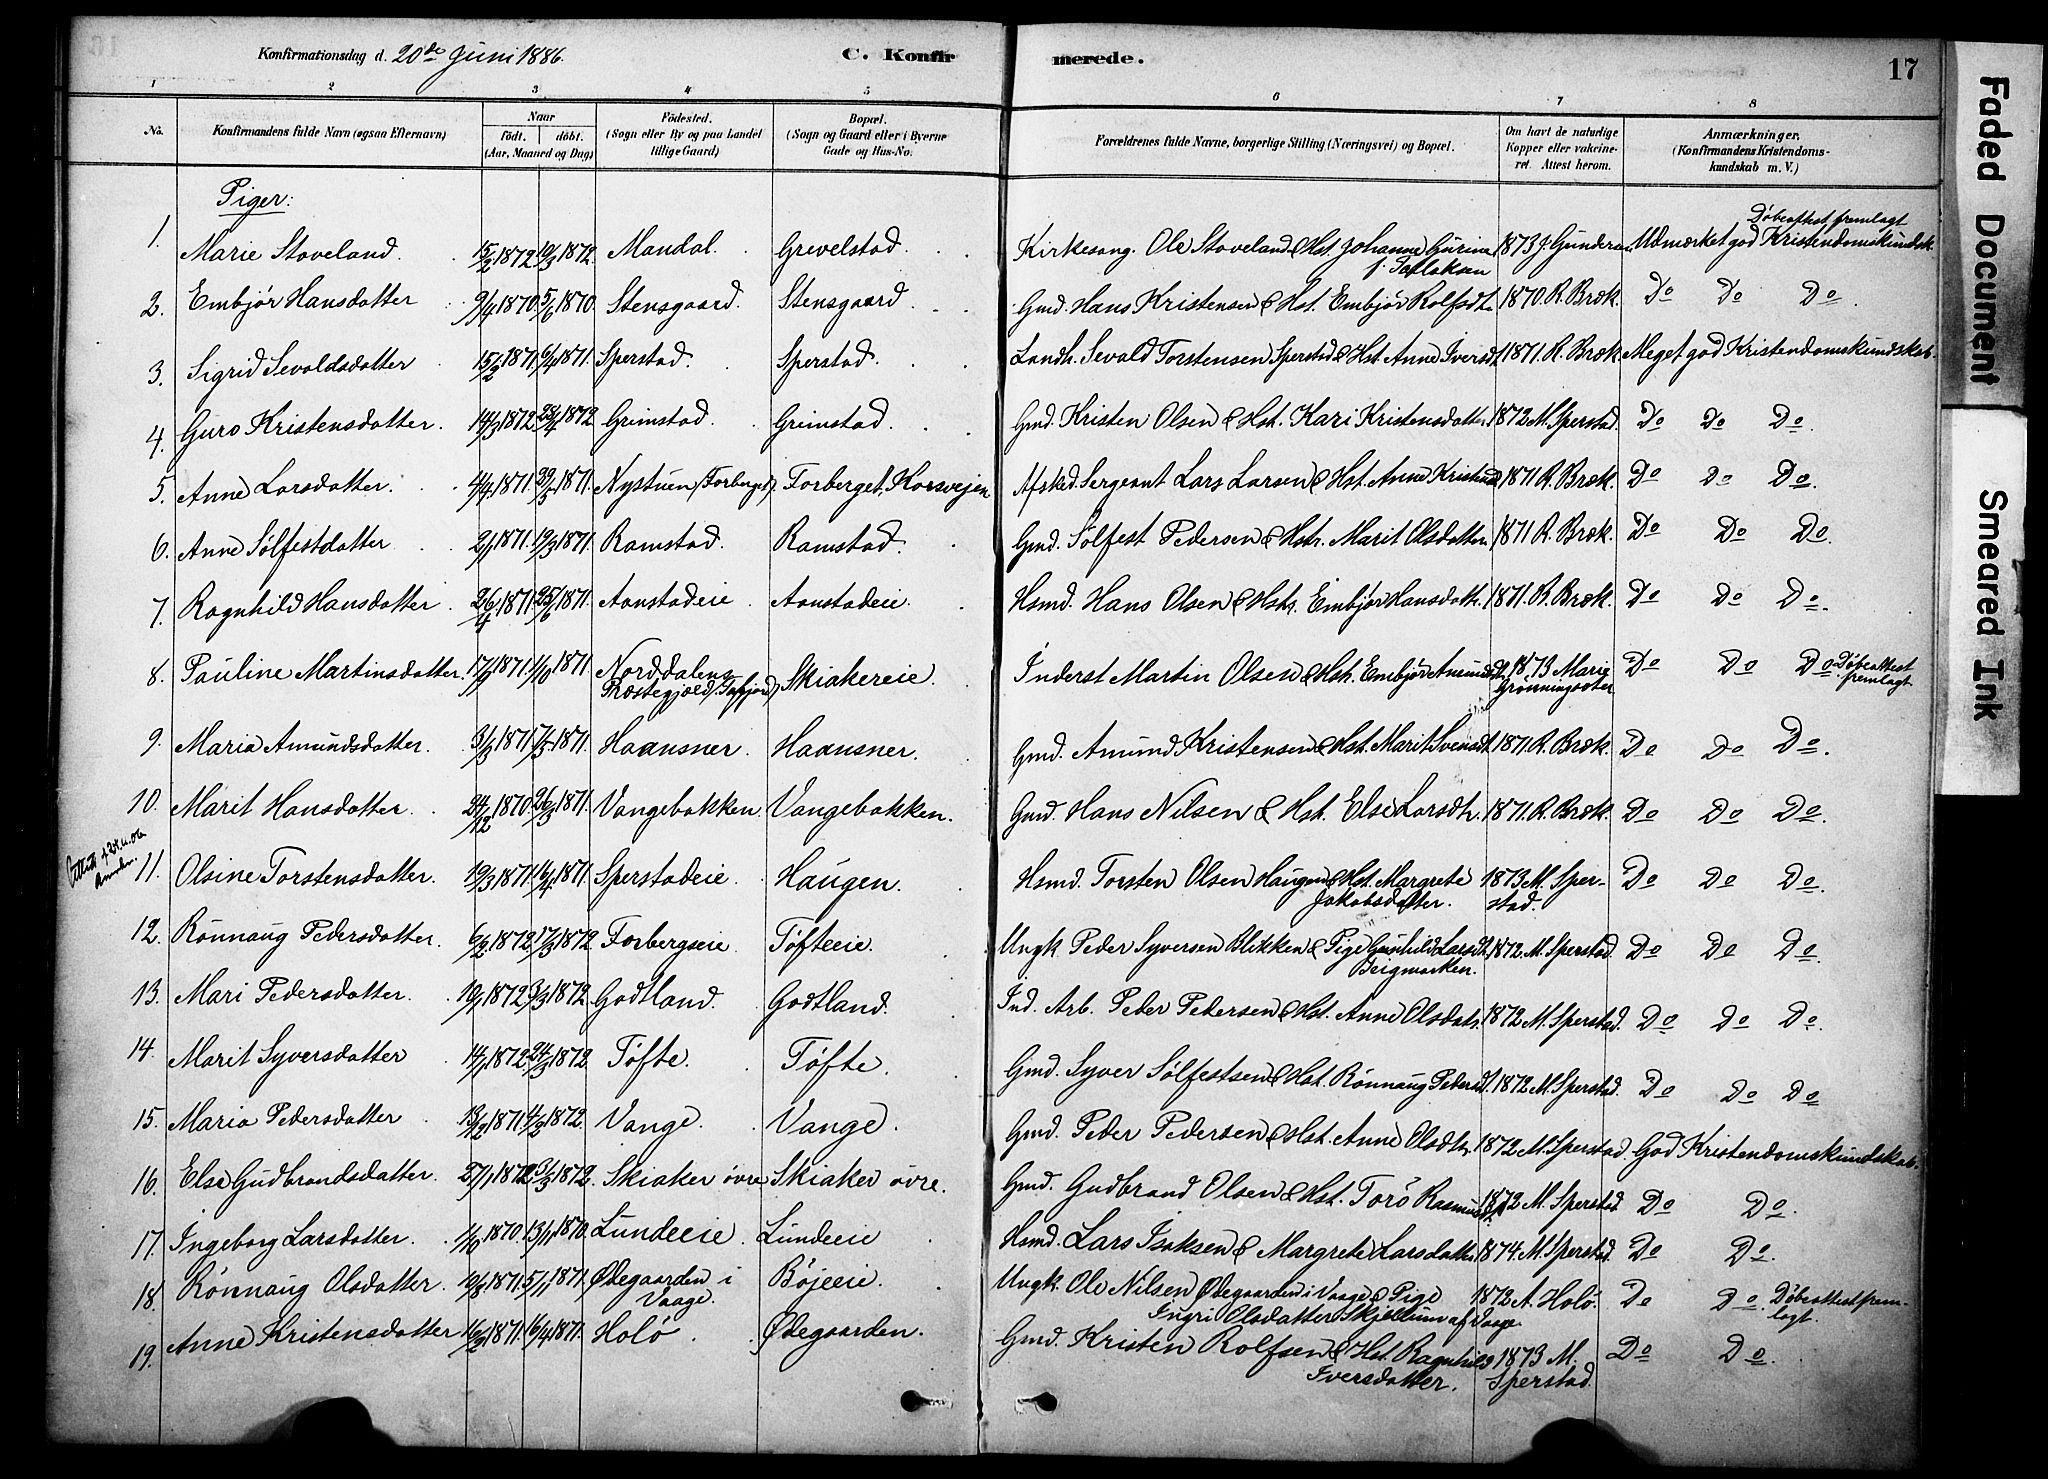 Konfirmationsdag d. 20de Juni 1886.
C. Konfirmerede.
17
1 2 3 4 5 6 7 8
No. Konfirmandens fulde Navn (ogsaa Efternavn) Naar født. døbt. (Aar, Maaned og Dag) Fødested. (Sogn eller By og paa Landet tillige Gaard) Bopæl. (Sogn og Gaard eller i Byerne Gade og Hus-No. Forældrenes fulde Navne, borgerlige Stilling (Næringsvei) og Bopæl. Om havt de naturlige Kopper eller vakcineret. Attest herom. Anmærkninger. (Konfirmandens Kristendomskundskab m. V.)
Piger:
1. Marie Stoveland. 15/2 1872 19/3 1872. Mandal. Grevelstad. Kirkesang. Ole Stoveland & Hst. Johanne Gurine f. 1873 J. Gundersen Udmærket god Kristendomskundsk. Døbeattest fremlagt
2. Embjør Hansdatter 9/4 1870 5/6 1870. Stensgaard. Stensgaard. Gmd. Hans Kristensen & Hst. Embjør Rolfsdt. 1870 R. Bræk. Do Do Do.
3. Sigrid Sevaldsdatter 15/2 1871. 6/4 1871. Sperstad. Sperstad. Landh. Sevald Torstensen Sperstad & Hst. Anne Iversdt. 1871. R. Bræk. Meget god Kristendomskundskab.
4. Guro Kristensdatter. 14/3 1872 28/4 1872 Grimstad. Grimstad. Gmd. Kristen Olsen & Hst. Kari Kristensdatter 1872 M. Sperstad. Do Do Do.
5. Anne Larsdatter. 4/4 1871. 29/5 1871. Nystuen (Forberget). Forberget, Korsvejen Afsked. Sergeant Lars Larsen & Hst. Anne 1871 R. Bræk. Do Do Do.
6. Anne Sølfestdatter 2/1 1871. 19/3 1871. Ramstad. Ramstad. Gmd. Sølfest Pedersen & Hst. Marit Olsdatter 1871 R. Bræk. Do Do Do.
7. Ragnhild Hansdatter. 26/4 1871 25/6 1871. Aanstadeie. Aanstadeie. Hsmd. Hans Olsen & Hst. Embjør Hansdatt. 1871. R. Bræk. Do Do Do.
8. Pauline Martinsdatter. 17/9 1871. 1/10 1871. Norddalens Præstegjæld (Tafjord) Skiakereie. Inderst Martin Olsen & Hst. Embjør Amundsdt. 1873 Marie Grønningsæter Do Do Do Døbeattest fremlagt
9. Maria Amundsdatter. 31/3 1871 7/5 1871. Haansner. Haansner. Gmd. Amund Kristensen & Hst. Marit Svensdt. 1871. R. Bræk. Do Do Do.
10. Marit Hansdatter. 24/12 1870. 26/3 1871. Vangebakken. Vangebakken. Gmd. Hans Nilsen & Hst. Else Larsdtr. 1871. R. Bræk. Do Do Do.
11. Olsine Torstensdatter. 19/3 1871 16/4 1871. Sperstadeie. Haugen. Hsmd. Torsten Olsen Haugen & Hst. Margrete Jakobsdatter. 1873 M. Sperstad. Do Do Do.
12. Rønnaug Pedersdatter. 6/2 1872 17/3 1872. Forbergseie. Tøfteeie. Ungk. Peder Syversen Blikken & Pige Gunhild Larsdt. 1872. M. Sperstad. Do Do Do.
13. Mari Pedersdatter. 10/1 1872 3/3 1872. Godtland. Godtland. Ind. Arb. Peder Pedersen & Hst. Anne Olsdatr. 1872 M. Sperstad. Do Do Do.
14. Marit Syversdatter 14/1 1872. 24/3 1872 Tøfte. Tøfte. Gmd. Syver Sølfestsen & Hst. Rønnaug Pedersdt. 1872 M. Sperstad. Do Do Do
15. Maria Pedersdatter 13/12 1871. 4/2 1872. Vange. Vange. Gmd. Peder Pedersen & Hst. Anne Olsdtr. 1872 M. Sperstad. God Kristendomskundskab.
16. Else Gudbrandsdatter. 27/1 1872 3/3 1872. Skiaker øvre Skiaker øvre. Gmd. Gudbrand Olsen & Hst. Torø Rasmusdt. 1872 M. Sperstad Do Do.
17. Ingeborg Larsdatter. 1/10 1870. 13/11 1870. Lundeeie. Lundeeie Hsmd. Lars Isaksen & Margrete Larsdatter 1874. M. Sperstad. Do Do.
18. Rønnaug Olsdatter. 19/8 1871. 5/11 1871. Ødegaarden i Vaage. Bøjeeie. Ungk. Ole Nilsen Ødegaarden i Vaage & Pige Ingri Olsdatter Skjellum af Vaage. 1872 A. Holø. Do Do. Døbeattest fremlagt.
19. Anne Kristensdatter 16/2 1871. 16/4 1871. Holø. Ødegaarden. Gmd. Kristen Rolfsen & Hst. Ragnhild Iversdatter. 1873 M. Sperstad. Do Do.
Faded Document
Smeared Ink